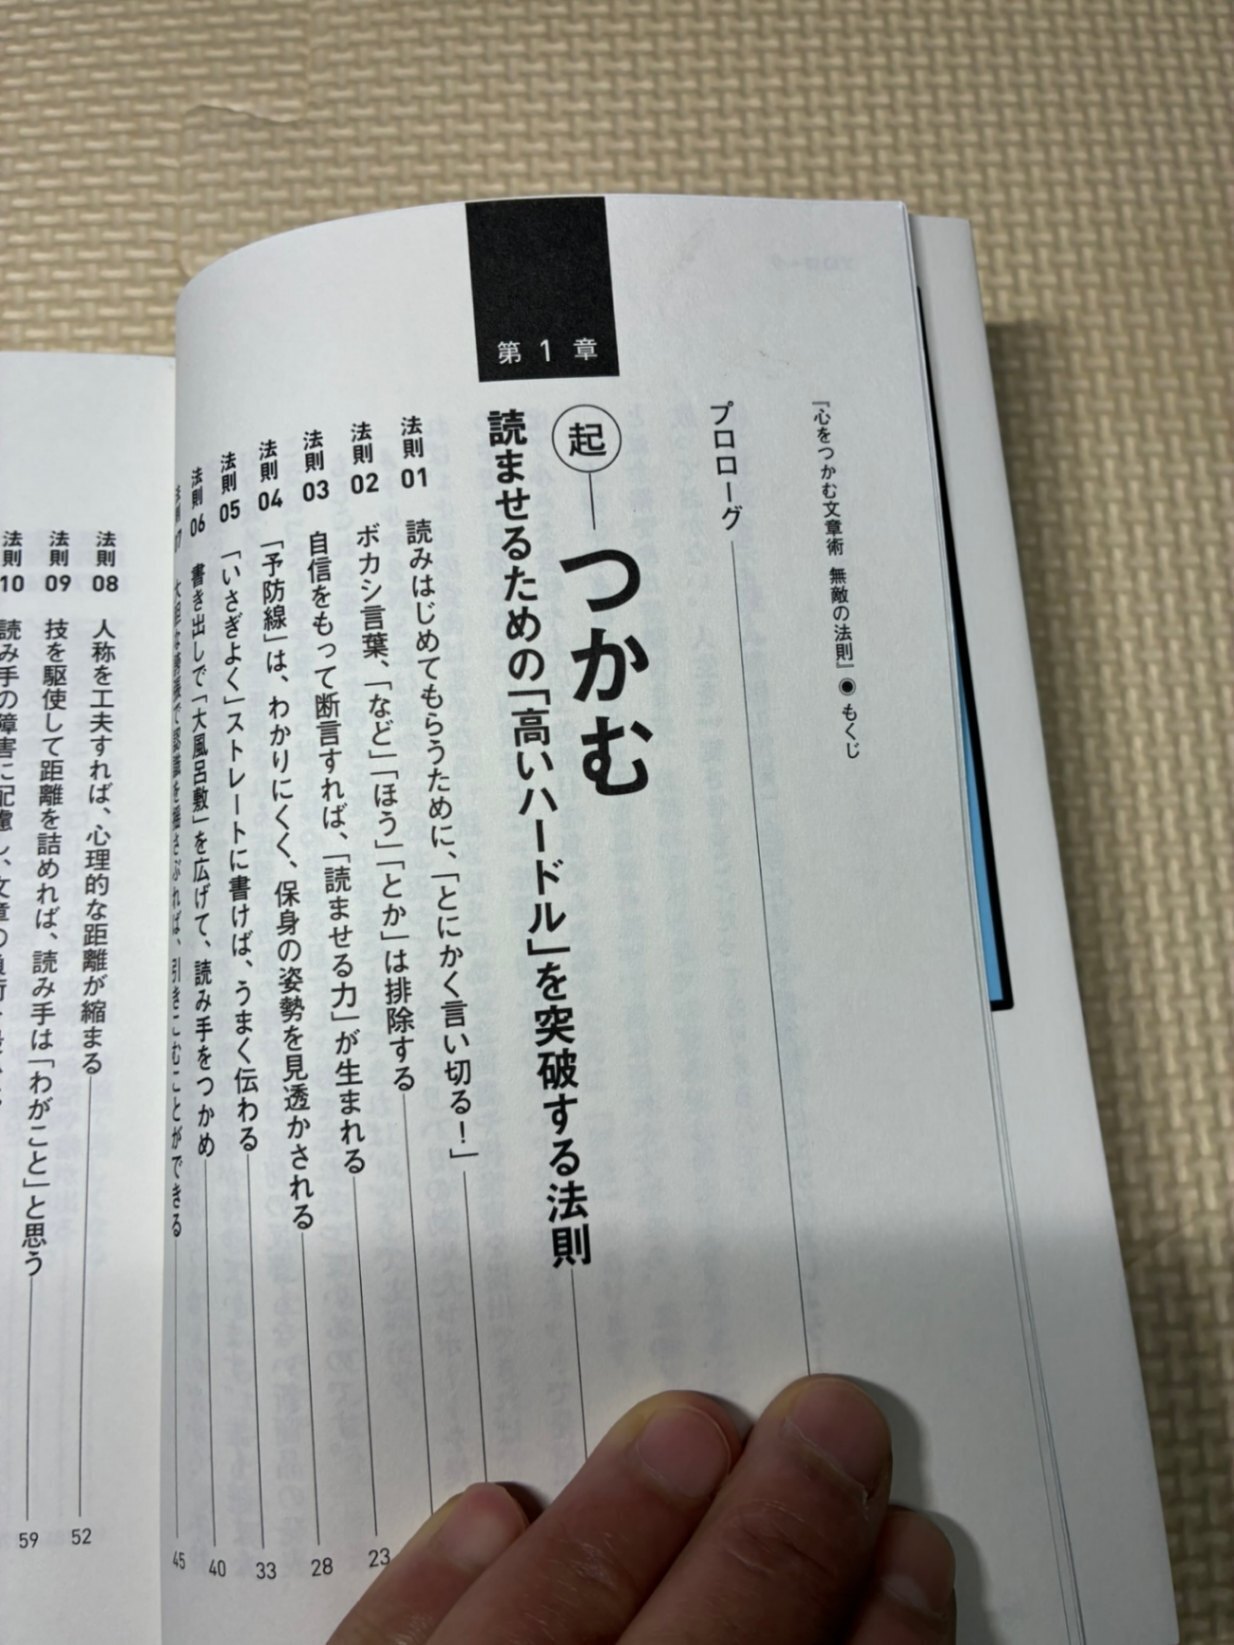 『心をつかむ文章術 無敵の法則』◉もくじ
プロローグ
第1章
起 つかむ
読ませるための「高いハードル」を突破する法則
法則01 読みはじめてもらうために、「とにかく言い切る！」
法則02 ボカシ言葉、「など」「ほう」「とか」は排除する
法則03 自信をもって断言すれば、「読ませる力」が生まれる 23
法則04 「予防線」は、わかりにくく、保身の姿勢を見透かされる 28
法則05 「いさぎよく」ストレートに書けば、うまく伝わる 33
法則06 書き出しで「大風呂敷」を広げて、読み手をつかめ 40
法則07 で認識を揺さぶれば、引きこむことができる 45
法則08 人称を工夫すれば、心理的な距離が縮まる 52
法則09 技を駆使して距離を詰めれば、読み手は「わがこと」と思う 59
法則10 読み手の障害に配慮し、文章の